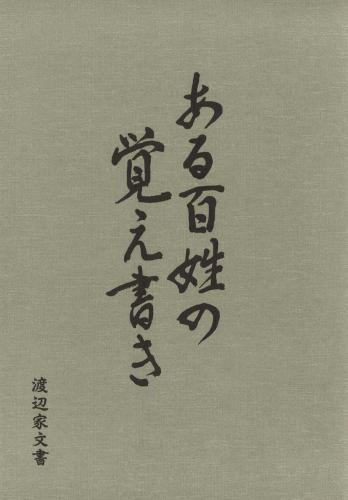 ある百姓の
覚え書き
渡辺家文書